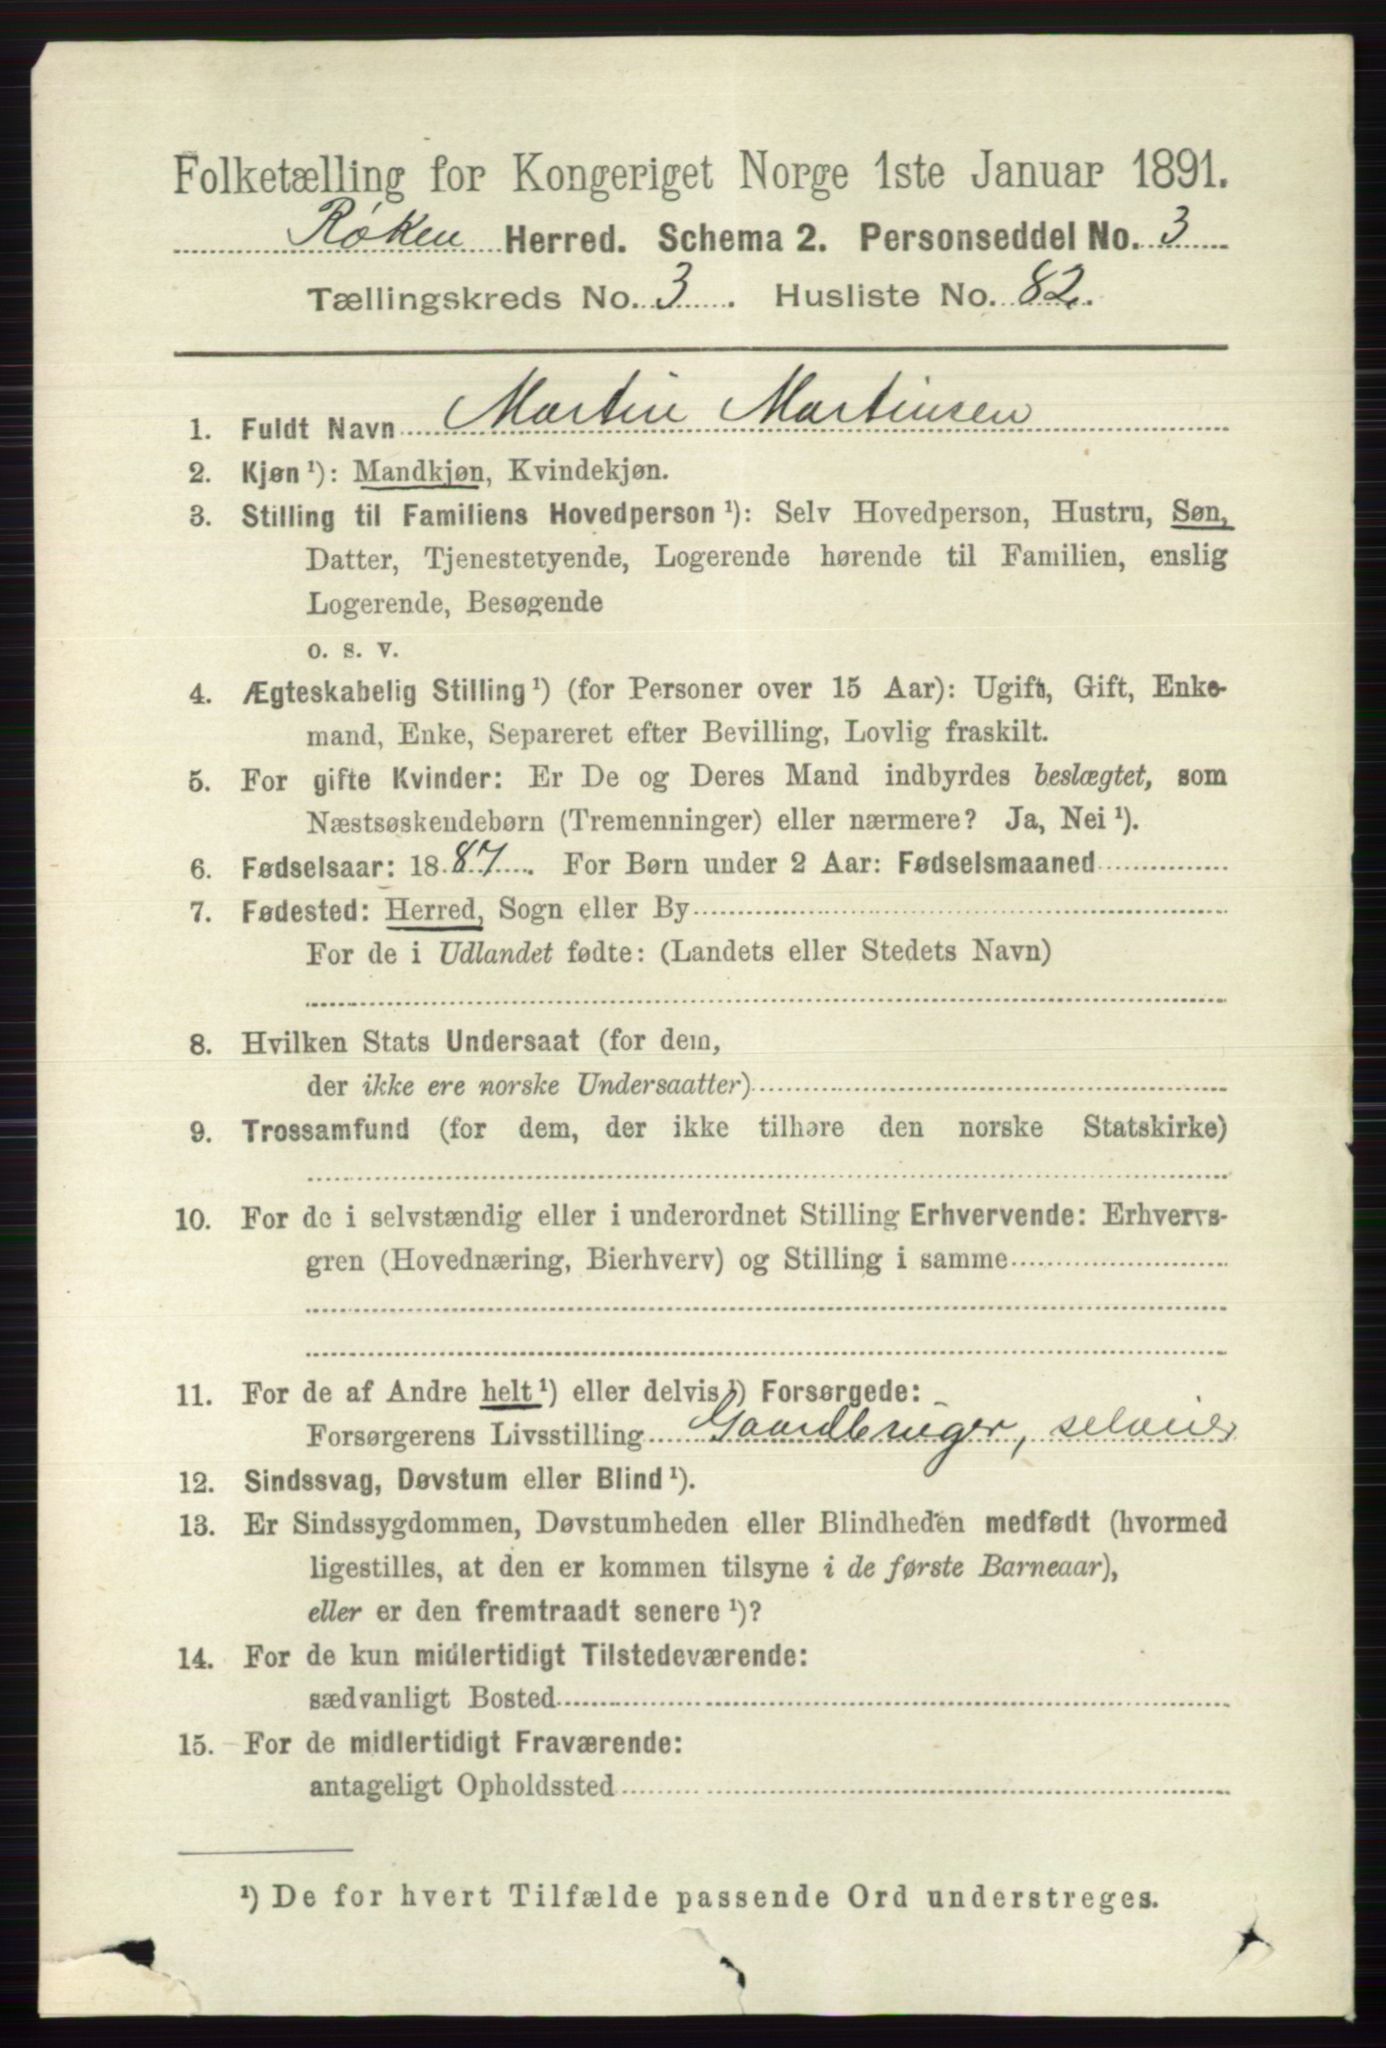 Folketælling for Kongeriget Norge 1ste Januar 1891.
Røken Herred. Schema 2. Personseddel No. 3
Tællingskreds No. 3. Husliste No. 82.
1. Fuldt Navn Martin Martinsen
2. Kjøn ¹): Mandkjøn, Kvindekjøn.
3. Stilling til Familiens Hovedperson ¹): Selv Hovedperson, Hustru, Søn,
Datter, Tjenestetyende, Logerende hørende til Familien, enslig
Logerende, Besøgende
o. s. v.
4. Ægteskabelig Stilling ¹) (for Personer over 15 Aar): Ugift, Gift, Enke-
mand, Enke, Separeret efter Bevilling, Lovlig fraskilt.
5. For gifte Kvinder: Er De og Deres Mand indbyrdes beslægtet, som
Næstsøskendebørn (Tremenninger) eller nærmere? Ja, Nei ¹).
6. Fødselsaar: 1887. For Børn under 2 Aar: Fødselsmaaned
7. Fødested: Herred, Sogn eller By
For de i Udlandet fødte: (Landets eller Stedets Navn)
8. Hvilken Stats Undersaat (for dem,
der ikke ere norske Undersaatter)
9. Trossamfund (for dem, der ikke tilhøre den norske Statskirke)
10. For de i selvstændig eller i underordnet Stilling Erhvervende: Erhvervs-
gren (Hovednæring, Bierhverv) og Stilling i samme
11. For de af Andre helt ¹) eller delvis ¹) Forsørgede:
Forsørgerens Livsstilling Gaardbruger, selveier
12. Sindssvag, Døvstum eller Blind ¹).
13. Er Sindssygdommen, Døvstumheden eller Blindheden medfødt (hvormed
ligestilles, at den er kommen tilsyne i de første Barneaar),
eller er den fremtraadt senere ¹)?
14. For de kun midlertidigt Tilstedeværende:
sædvanligt Bosted
15. For de midlertidigt Fraværende:
antageligt Opholdssted
¹) De for hvert Tilfælde passende Ord understreges.